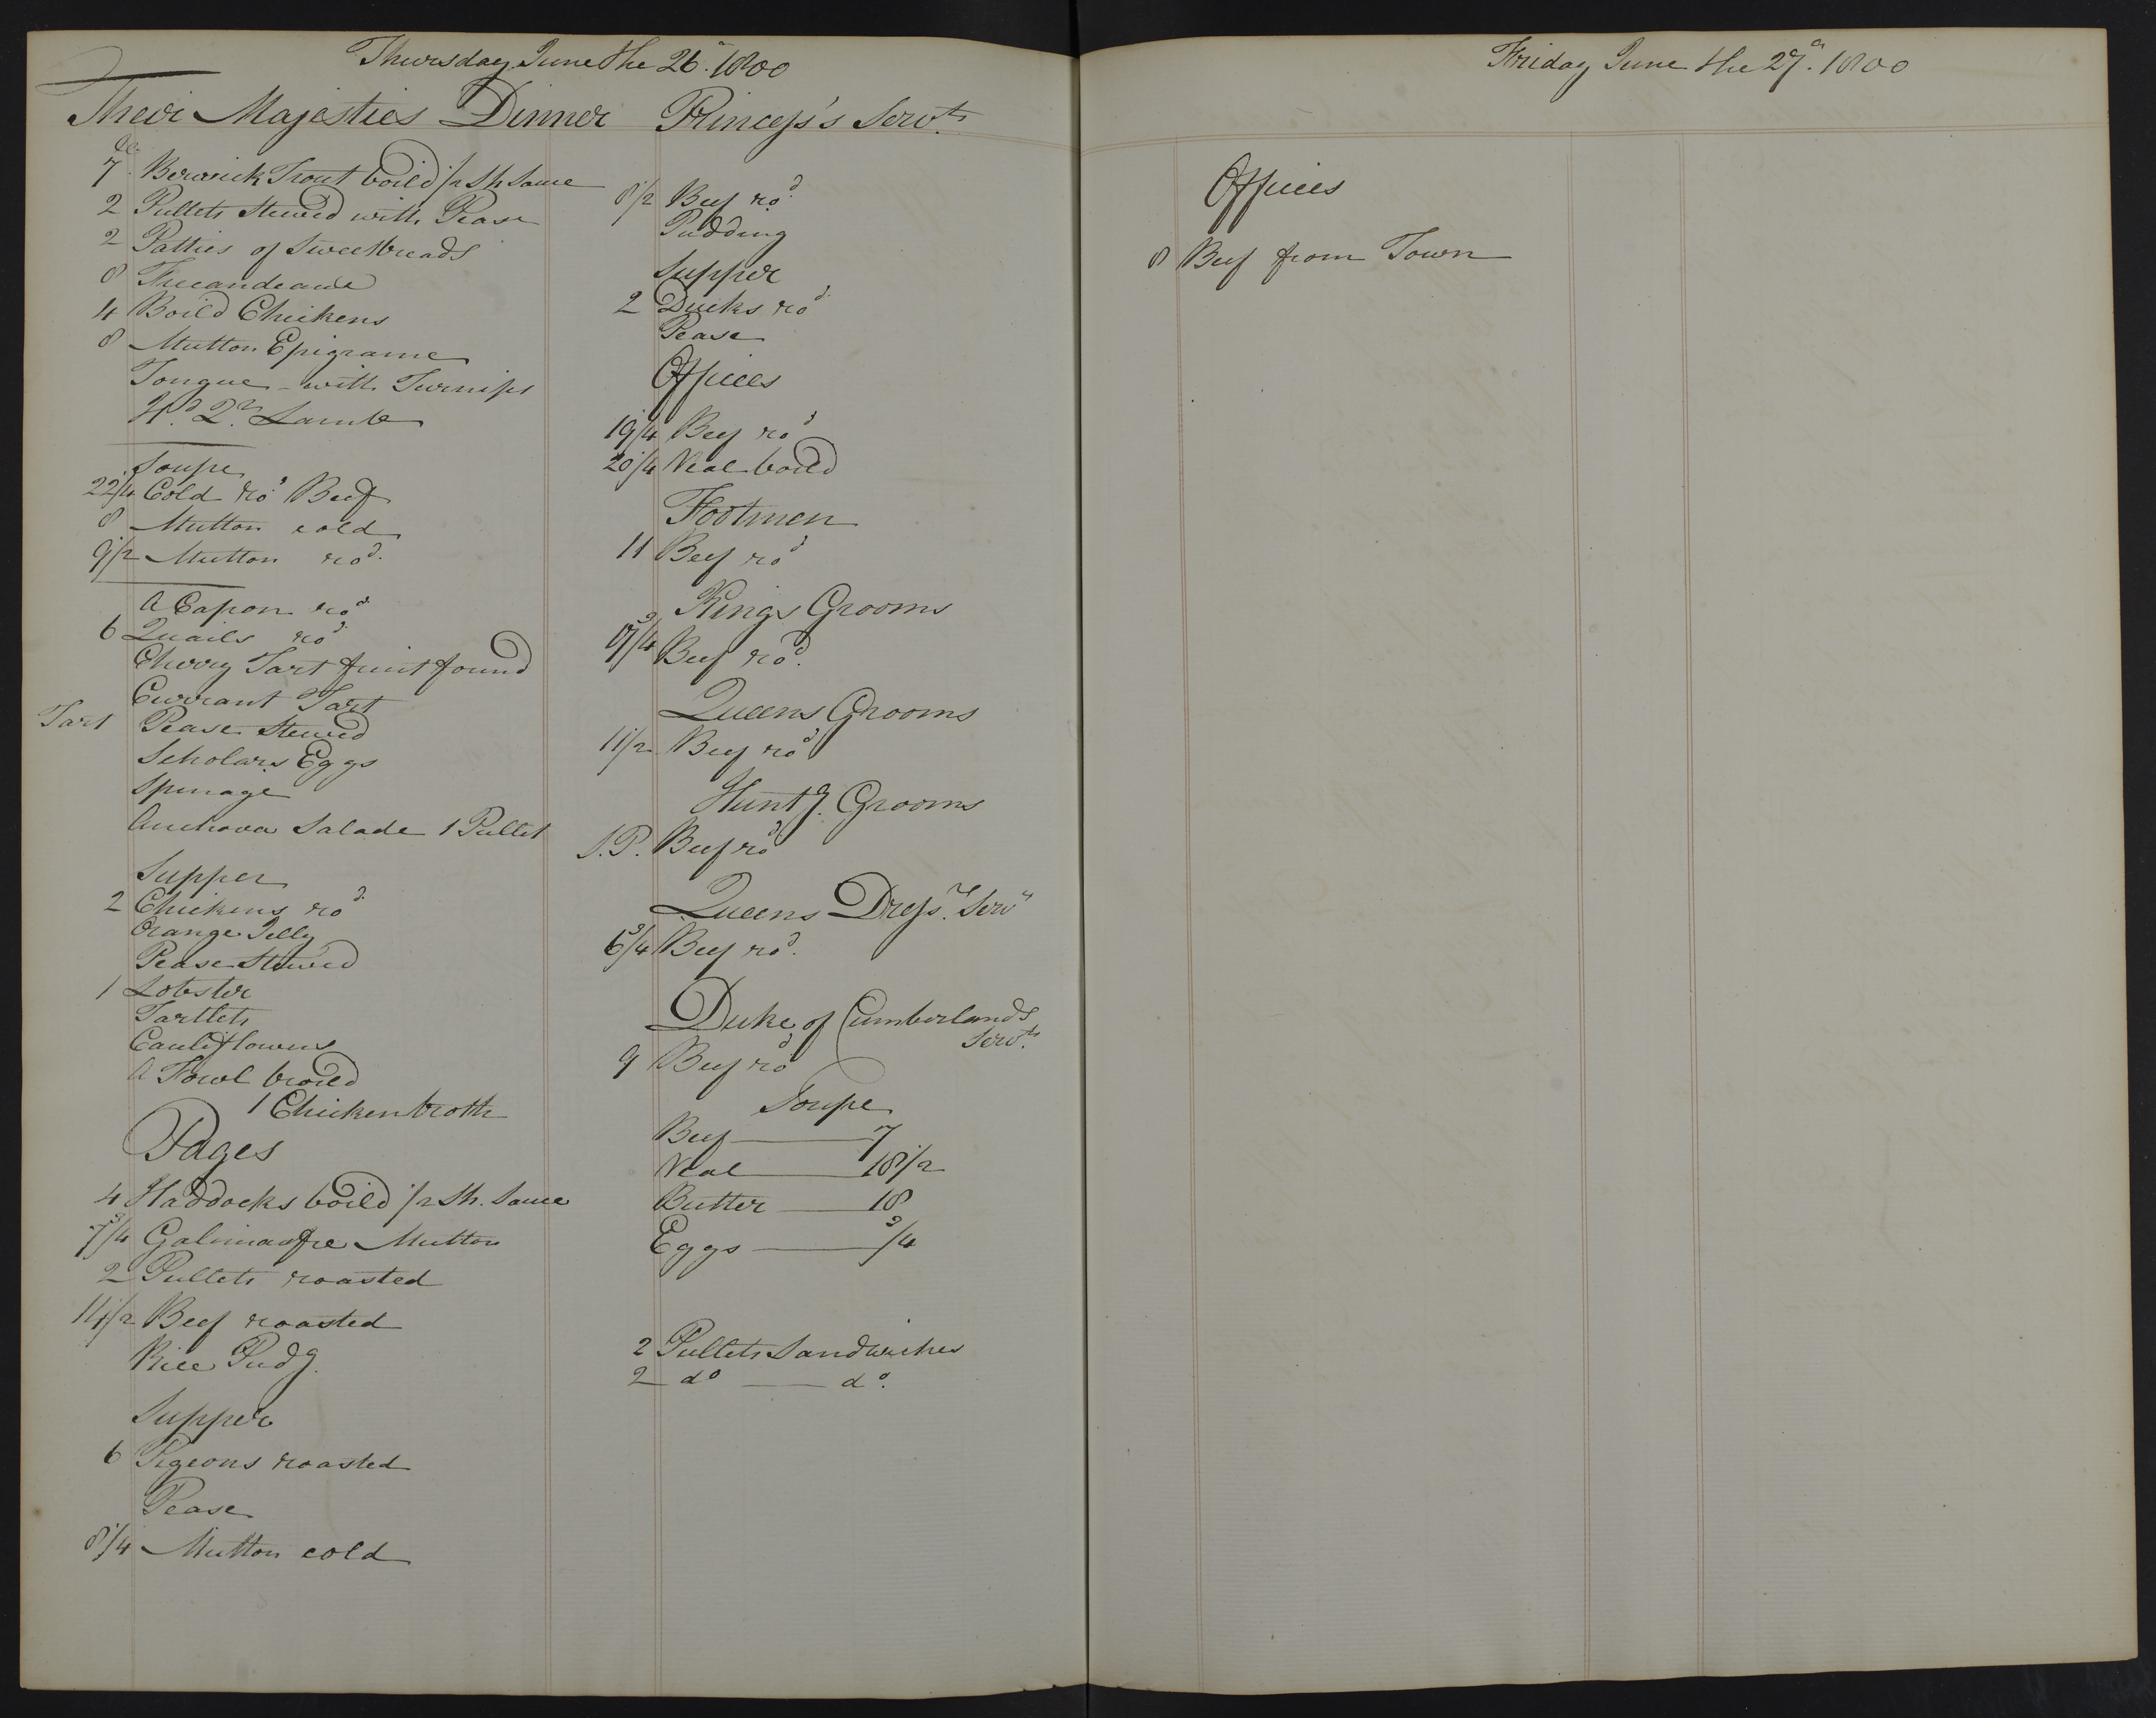 Thursday June the 26. 1800
Their Majesties Dinner
7 Berwick Trout boild /2 Sh Sauce
2 Pullets Stewed with Pease
2 Patties of Sweetbreads
8 Frecandeaue
4 Boild Chickens
8 Mutton Epigrame
Tongue with Turnips
Hd. Qr. Lamb
Soupe
22/4 Cold rod Beef
8 Mutton cold
9 1/2 Mutton rod.
A Capon rod.
6 Quails rod.
Cherry Tart fruit found
Currant Tart
Tart Pease Stewed
Scholars Eggs
Spinage
Anchova Salade 1 Pullet
Supper
2 Chickens rod.
Orange Jelly
Pease Stewed
1 Lobster
Tartlets
Cauliflowers
A Fowl broild
1 Chicken broth
Pages
4 Haddocks boild /2 Sh. Sauce
7 3/4 Galimaofre Mutton
2 Pullets roasted
14 1/2 Beef roasted
Rice Pudg.
Supper
6 Pigeons roasted
Pease
8 1/4 Mutton cold
Princess's Servts.
8 1/2 Beef rod.
Pudding
Supper
2 Ducks rod.
Pease
Offices
19 1/4 Beef rod
20 1/4 Veal boild
Footmen
11 Beef rod
Kings Grooms
17 3/4 Beef rod.
Queens Grooms
11 1/2 Beef rod
Huntg. Grooms
S.P. Beef rod
Queens Dressrs. Servts
6 3/4 Beef rod.
Duke of Cumberlands
Servts.
9 Beef rod
Soupe
Beef 7
Veal 18 1/2
Butter 18
Eggs 3/4
2 Pullets Sandwiches
2 do do.
Friday June the 27. 1800
Offices
8 Beef from Town